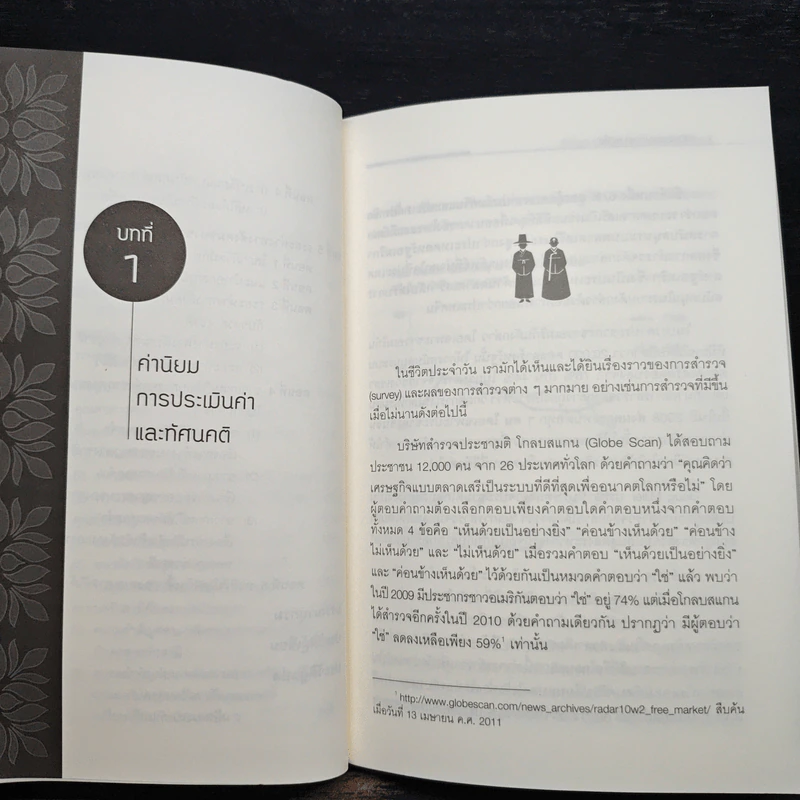 บทที่
1
ค่านิยม
การประเมินค่า
และทัศนคติ
ในชีวิตประจำวัน เรามักได้เห็นและได้ยินเรื่องราวของการสำรวจ
(survey) และผลของการสำรวจต่าง ๆ มากมาย อย่างเช่นการสำรวจที่มีขึ้น
เมื่อไม่นานดังต่อไปนี้
บริษัทสำรวจประชามติ โกลบสแกน (Globe Scan) ได้สอบถาม
ประชาชน 12,000 คน จาก 26 ประเทศทั่วโลก ด้วยคำถามว่า “คุณคิดว่า
เศรษฐกิจแบบตลาดเสรีเป็นระบบที่ดีที่สุดเพื่ออนาคตโลกหรือไม่” โดย
ผู้ตอบคำถามต้องเลือกตอบเพียงคำตอบใดคำตอบหนึ่งจากคำตอบ
ทั้งหมด 4 ข้อคือ “เห็นด้วยเป็นอย่างยิ่ง” “ค่อนข้างเห็นด้วย” “ค่อนข้าง
ไม่เห็นด้วย” และ “ไม่เห็นด้วย” เมื่อรวมคำตอบ “เห็นด้วยเป็นอย่างยิ่ง”
และ “ค่อนข้างเห็นด้วย” ไว้ด้วยกันเป็นหมวดคำตอบว่า “ใช่” แล้ว พบว่า
ในปี 2009 มีประชากรชาวอเมริกันตอบว่า “ใช่” อยู่ 74% แต่เมื่อโกลบสแกน
ได้สำรวจอีกครั้งในปี 2010 ด้วยคำถามเดียวกัน ปรากฏว่า มีผู้ตอบว่า
“ใช่” ลดลงเหลือเพียง 59%¹ เท่านั้น
¹ http://www.globescan.com/news_archives/radar10w2_free_market/ สืบค้น
เมื่อวันที่ 13 เมษายน ค.ศ. 2011